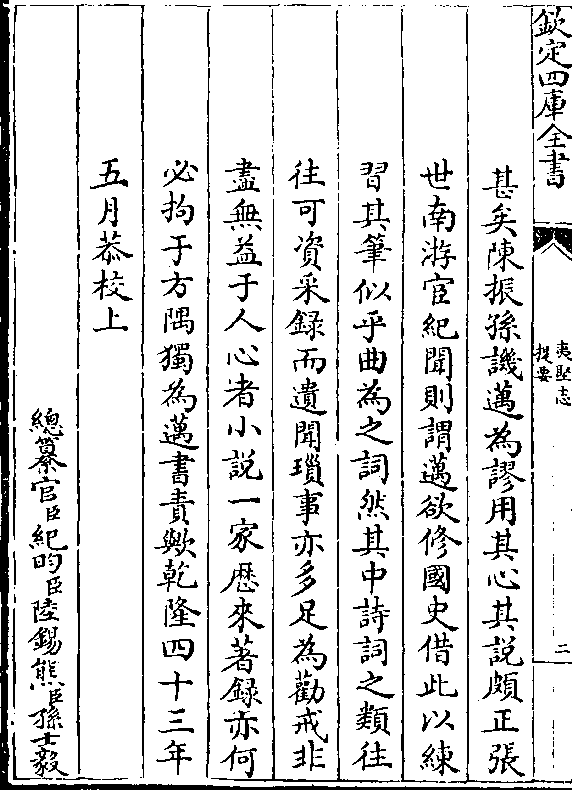 欽定四庫全書
夷堅志
提要
二
甚矣陳振孫譏邁為謬用其心其說頗正張
世南游宦紀聞則謂邁欲修國史借此以練
習其筆似乎曲為之詞然其中詩詞之類往
往可資采錄而遺聞瑣事亦多足為勸戒非
盡無益于人心者小說一家歷來著錄亦何
必拘于方隅獨為邁書責歟乾隆四十三年
五月恭校上
總纂官臣紀昀臣陸錫熊臣孫士毅